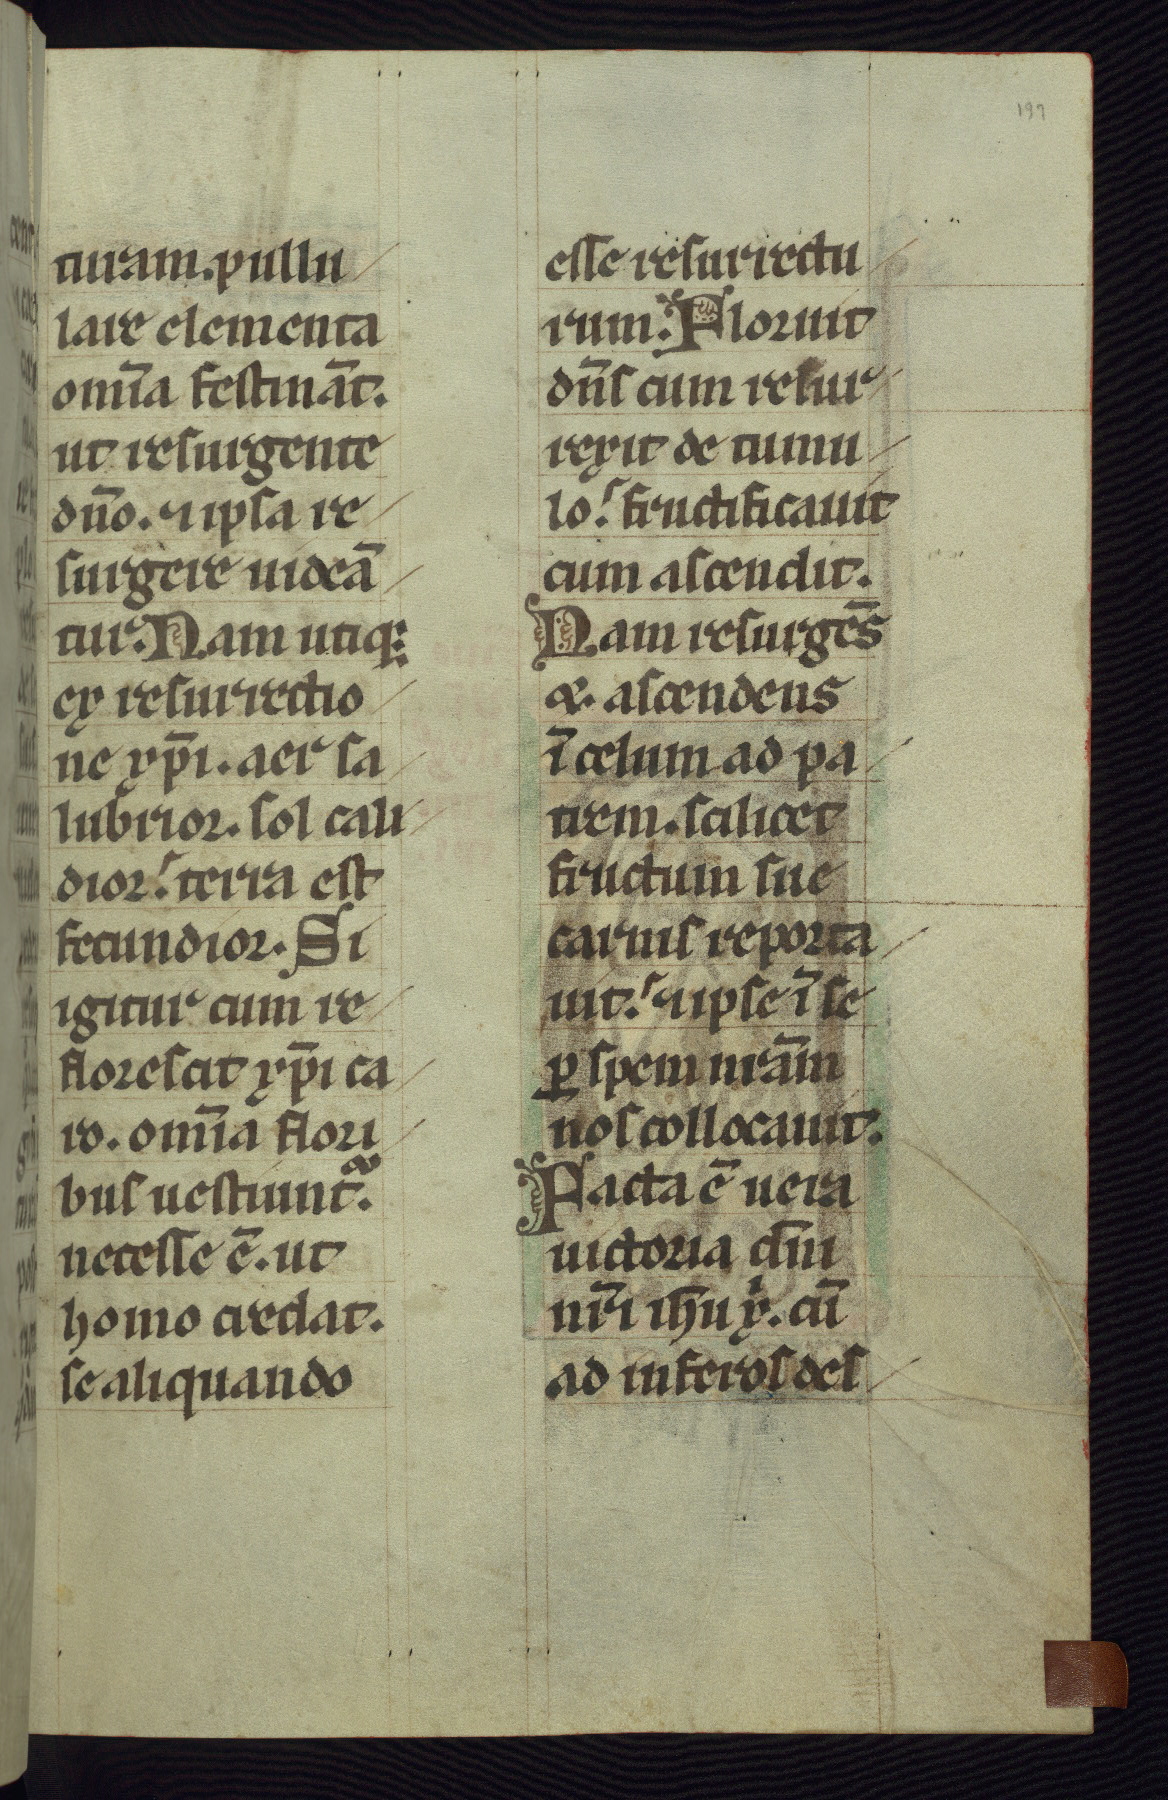 197
turam. pullu
lare elementa
omīa festināt.
ut resurgente
dn̄o. ⁊ ipsa re
surgere uideā
tur. Nam utiq;
ex resurrectio
ne xp̄i. aer sa
lubrior. sol cali
dior. terra est
fecundior. Si
igitur cum re
florescat xp̄i ca
ro. omīa flori
bus uestiunt᷑.
necesse ē. ut
homo credat.
se aliquando
esse resurrectu
rum. Floruit
dn̄s cum resur
rexit de tumu
lo. fructificauit
cum ascendit.
Nam resurgēs
&. ascendens
ī celum ad pa
trem. scilicet
fructum sue
carnis reporta
uit. ⁊ ipse ī se
ꝑ spem nr̄am
nos collocauit.
Facta ē uera
uictoria dn̄i
nr̄i ih̄u x. cū
ad inferos des